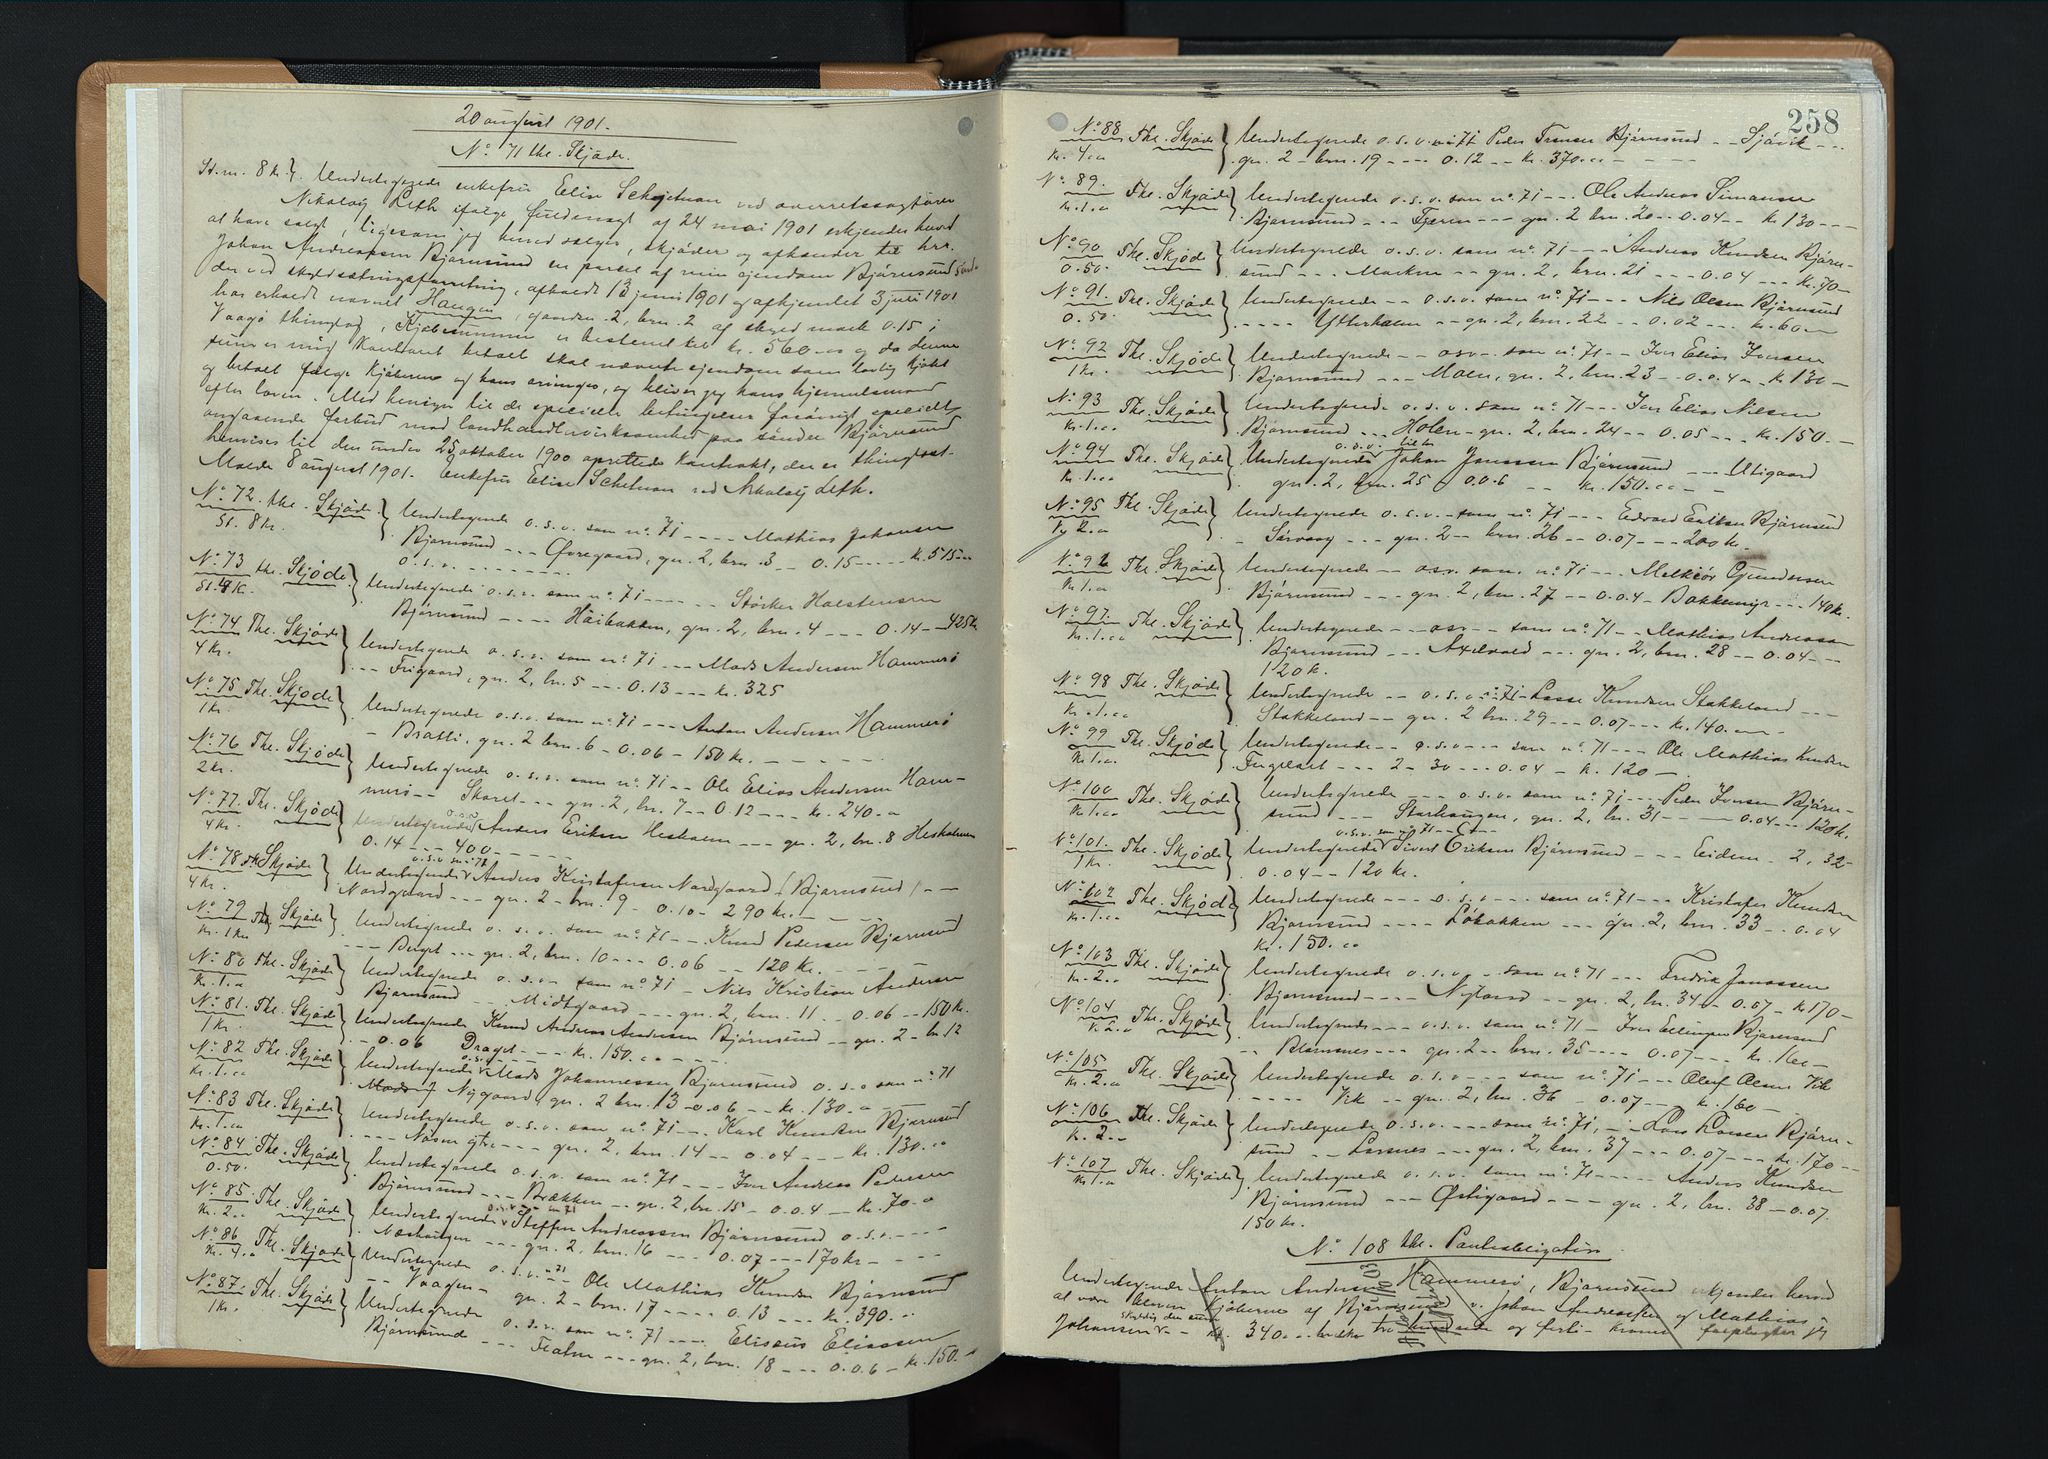 20 august 1901.
No 71 the. Skjøde.
St.m. 8 kr. Undertegnede enkefru Elise Schetnan ved overretssagfører
Nikolay Leth ifølge fuldmagt af 24 mai 1901 erkjender herved
at have solgt, ligesom jeg herved sælger, skjøder og afhænder til hrr.
Johan Andreassen Bjørnsund en parcel af min eiendom Bjørnsund søndre
der ved skyldsætningsforretning, afholdt 13 juni 1901 og afhjemlet 3 juli 1901
har erholdt navnet Haugen, gaardsn. 2, brn. 2 af skyld mark 0.15 i
Vaagø thinglag. Kjøbesummen er bestemt til kr. 560.00 og da denne
sum er mig kontant betalt skal nævnte eiendom som lovlig kjøbt
og betalt følge kjøberne og hans arvinger, og bliver jeg hans hjemmelsmand
efter loven. Med hensyn til de specielle betingelser forøvrigt, specielt
angaaende forbud mod landhandlervirksomhed paa søndre Bjørnsund
henvises til den under 25 oktober 1900 oprettede kontrakt, der er thinglæst.
Molde 8 august 1901. Enkefru Elise Schetnan ved Nikolay Leth.
No 72. the. Skjøde. Undertegnede o.s.v. som no. 71 ---- Mathias Johansen
St. 8 kr. Bjørnsund --- Øvregaard, gn. 2, brn. 3 -- 0.15 ---- kr. 515 --
o.s.v. --------
No 73 the. Skjøde Undertegnede o.s.v. som no. 71 ----- Størker Halstensen
St. 4 K. Bjørnsund ---- Haibakken, gn. 2, brn. 4 --- 0.14 -- 425 kr
No 74 The. Skjøde Undertegnede o.s.v. som no. 71 --- Mads Andersen Hammerø
4 kr. --- Frigaard, gn. 2, bn. 5 --- 0.13 --- kr. 325
No 75 The. Skjøde Undertegnede o.s.v. som no. 71 --- Anton Andersen Hammerø
1 kr. - Bratli, gn. 2 brn. 6 - 0.06 - 150 kr. ------
No 76 The. Skjøde Undertegnede o.s.v. som no. 71 -- Ole Elias Andersen Ham-
2 kr. merø -- Skaret --- gn. 2, bn. 7 -- 0.12 --- kr. 240.00
No 77 The. Skjøde Undertegnede o.s.v. Anders Eriksen Hesholm --- gn. 2, brn. 8 Hesholmen
4 kr. 0.14 --- 400 -----
No 78 the Skjøde Undertegnede o.s.v. som no 71 Anders Kristofersen Nordgaard (Bjørnsund) --
4 kr. Nordgaard --- gn. 2 - brn. 9 - 0.10 - 290 kr. ----
No 79 The. Skjøde Undertegnede o.s.v. som no. 71 -- Knud Pedersen Bjørnsund
kr. 1 kr --- Berget -- gn. 2, brn. 10 --- 0.06 -- 120 kr. ----
No 80 the. Skjøde Undertegnede o.s.v. som no. 71 - Nils Kristian Andersen
kr. 1.00 Bjørnsund --- Midtgaard --- gn. 2, brn. 11 -- 0.06 -- 150 kr.
No 81. The. Skjøde Undertegnede Knud Andreas Andersen Bjørnsund -- gn. 2 - bn 12
1 kr. - 0.06 Draget --- kr. 150.00 ----
No 82 The. Skjøde Undertegnede o.s.v. Mads Johannessen Bjørnsund o.s.v som no. 71
kr. 1.00 Nygaard, gn. 2 brn. 13 - 0.06 -- kr. 130.00
No 83 The. Skjøde Undertegnede o.s.v. som no. 71 -- Karl Knudsen Bjørnsund
kr. 1.00 --- gn. 2, brn. 14 -- 0.04 --- kr. 130.00
No 84. The. Skjøde Undertegnede o.s.v. som no. 71 --- Iver Andreas Pedersen
0.50. Bjørnsund --- Brækken -- gn. 2, brn. 15 - 0.04 -- Kr. 70.00
No 85. The. Skjøde Undertegnede o.s.v. som 71 Steffen Andreassen Bjørnsund o.s.v. ---
kr. 2.00 Neshaugen --- gn. 2, brn. 16 --- 0.07 --- 170 kr ---
No 86 The. Skjøde Undertegnede o.s.v. no 71 Ole Mathias Knudsen Bjørnsund
kr. 4.00 -- Vaagen - gn. 2 - brn. 17 ---- 0.13 --- kr. 390.00 --
No 87. The. Skjøde Undertegnede o.s.v. som no. 71 ---- Eliseus Eliassen
1 kr. Bjørnsund --- --- gn. 2, brn. 18 --- 0.06 - kr. 150.
258
No 88 The. Skjøde Undertegnede o.s.v. no 71 Peder Bjørnsund -- Sjøvik --
kr. 4.00 gn. 2 - brn. 19 ---- 0.12 -- kr. 370.00
No 89. The. Skjøde Undertegnede o.s.v. som no. 71 --- Ole Andreas Simonsen
kr. 1.00 Bjørnsund --- Fjæren --- gn. 2 brn. 20 -- 0.04 -- kr 130 ---
No 90 The. Skjøde Undertegnede o.s.v. som no. 71 --- Anders Knudsen Bjørn-
0.50. sund --- -- gn. 2, brn. 21 --- 0.04 --- Kr. 70 -
No 91. The. Skjøde Undertegnede -- o.s.v. som no. 71 --- Nils Olsen Bjørnsund
0.50 ---- Ytterholm -- gn. 2, brn. 22 -- 0.02 --- kr. 60 --
No 92 The. Skjøde Undertegnede -- osv. - som no. 71 -- Iver Elias Iversen
1 kr. Bjørnsund --- Moen, gn. 2, brn. 23 - 0.04 - kr 130 -
No. 93 The. Skjøde Undertegnede o.s.v. som no. 71 --- Iver Elias Nilsen
kr. 1.00 Bjørnsund --- Holen - gn. 2, brn. 24 -- 0.05 --- Kr. 150. -
No 94 The. Skjøde Undertegnede o.s.v. Johan Jonassen Bjørnsund --- Utigaard
Kr. 1.00 gn. 2, brn. 25 0.06 -- kr. 150.00 --
No 95 The. Skjøde Undertegnede o.s.v. - som no. 71 --- Edvard Eriksen Bjørnsund
kr 2.00 - Sørvaag --- gn. 2 -- brn. 26 -- 0.07 --- 200 kr.
No 96 The. Skjøde Undertegnede -- osv. som. no. 71 --- Melkior Gundersen
Kr. 1.00 Bjørnsund --- gn. 2, brn. 27 -- 0.04 - Bakkemyr --- 140 kr.
No 97. The. Skjøde Undertegnede -- osv -- som no. 71 -- Mathias Andreasen
Kr. 1.00 Bjørnsund --- Axelvold --- gn. 2, brn. 28 -- 0.04 ---
120 k.
No 98 The. Skjøde Undertegnede -- o.s.v. no 71 - Lasse Knudsen Stakkeland ---
kr. 1.00 Stakkeland -- gn. 2 brn. 29 --- 0.07 --- kr. 140. ---
No 99 The. Skjøde Undertegnede -- o.s.v. --- som no. 71 --- Ole Mathias Knudsen
Kr. 1.00 --- 2 - 30 --- 0.04 - k. 120 -
No 100 The. Skjøde Undertegnede --- o.s.v. som no. 71 --- Peder Iversen Bjørn-
Kr. 1.00 sund --- Storhaugen, gn. 2, bn. 31 --- 0.04 --- 120 k.
No 101. The. Skjøde Undertegnede o.s.v. som no 71 Sivert Eriksen Bjørnsund --- Eidem - 2, 32 -
1 kr. 0.04 -- 120 kr.
No 102 The. Skjøde Undertegnede --- o.s.v --- som no. 71 --- Kristofer Knudsen
kr. 1.00 Bjørnsund ---- Løbakken --- gn. 2, brn. 33 -- 0.04
kr. 150.00
No 103 The. Skjøde Undertegnede o.s.v. -- som no. 71 --- Fredrik Jonassen
kr. 2. Bjørnsund ---- -- gn. 2, bn. 34 - 0.07 - kr 170 -
No 104 The. Skjøde Undertegnede --- o.s.v. som no. 71 - Iver Ellingsen Bjørnsund
K. 2.00 -- --- gn. 2 -- brn. 35 ---- 0.07 --- Kr. 160 -
No 105 The. Skjøde Undertegnede o.s.v --- som no. 71 --- Oluf Olsen Vik
kr. 2.00 ---- Vik -- gn. 2, bn. 36 - 0.07 -- kr. 160 -
No 106 The. Skjøde Undertegnede o.s.v. --- som no. 71, -- Lars Larsen Bjørn-
K. 2 -- sund -- Larsnes --- gn. 2, brn. 37 --- 0.07 --- Kr. 170 --
No 107 The. Skjøde Undertegnede o.s.v. som no. 71 --- Anders Knudsen
Kr. 1.00 Bjørnsund --- Østigaard ---- gn. 2, brn. 38 - 0.07.
150 kr.
No 108 the. Panteobligation.
Undertegnede Anton Andersen Hammerø, Bjørnsund erkjender herved
at være bleven skyldig den mig kjøberne af Bjørnsund v. Johan Andreassen og Mathias
Johansen - kr. 340 -- tre hundrede og firti - kroner forpligter jeg